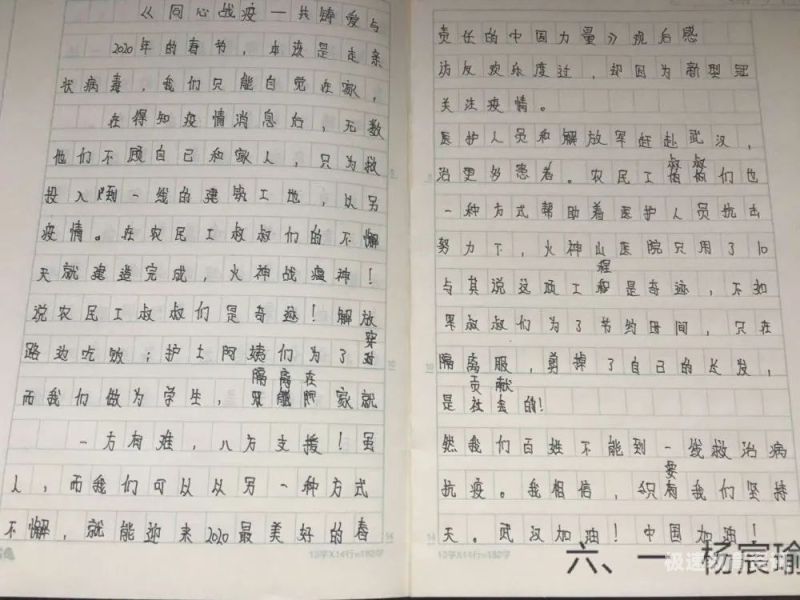 《同心战疫—共铸爱与
责任的中国力量》观后感
2020年的春节，本该是走亲
访友欢乐度过，却因为新型冠
状病毒，我们只能自觉在家，
关注疫情。
在得知疫情消息后，无数
医护人员和解放军赶赴武汉，
他们不顾自己和家人，只为救
治更多患者。农民工叔叔们也
投入到一线的建筑工地，以另
一种方式帮助着医护人员抗击
疫情。在农民工叔叔们的不懈
努力下，火神山医院只用了10
天就建造完成，火神战瘟神！
与其说这项工程是奇迹，不如
说农民工叔叔们是奇迹！解放
军叔叔们为了节约时间，只在
路边吃饭；护士阿姨们为了穿
隔离服，剪掉了自己的长发，
而我们做为学生，隔离在家就
是社会的贡献!
一方有难，八方支援！虽
然我们百姓不能到一线救治病
人，而我们可以以另一种方式
抗疫。我相信，只要我们坚持
不懈，就能迎来2020最美好的春
天。武汉加油！中国加油！
13字X14行=182字
13字X14行=182字
六、一 杨宸瑜